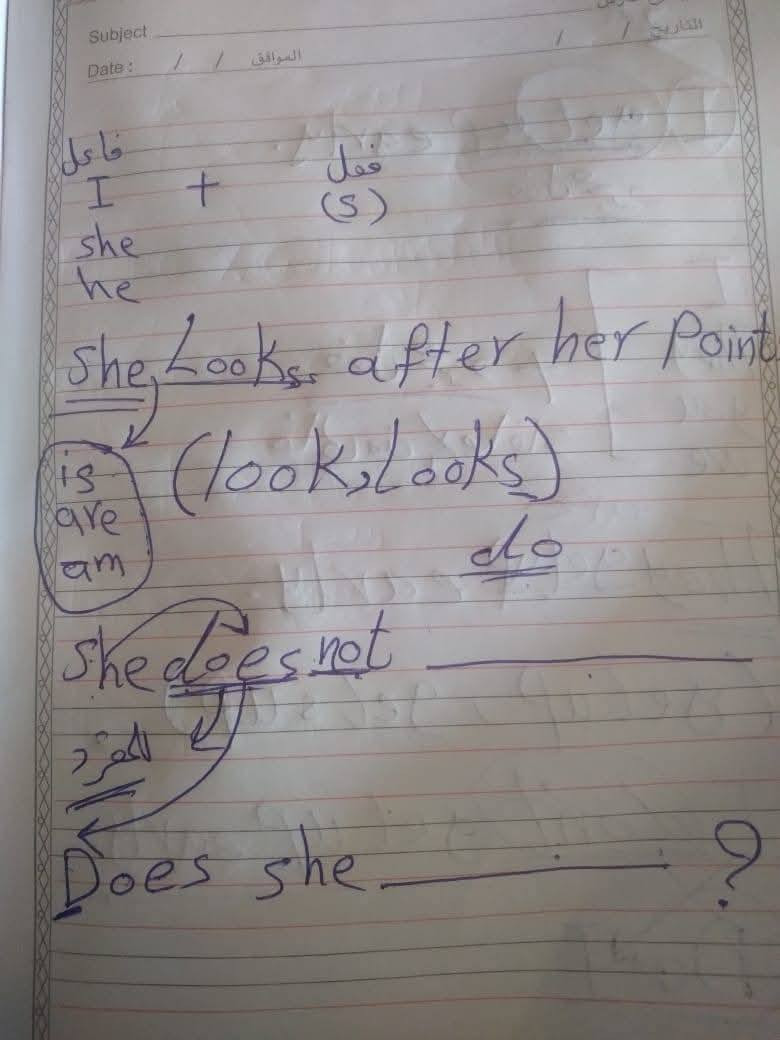 Subject
التاريخ / /
Date : / / الموافق
فاعل فعل
I + (S)
she
he
She Looks after her Point
is (look, Looks)
are
am do
She does not
للمفرد
Does she ?